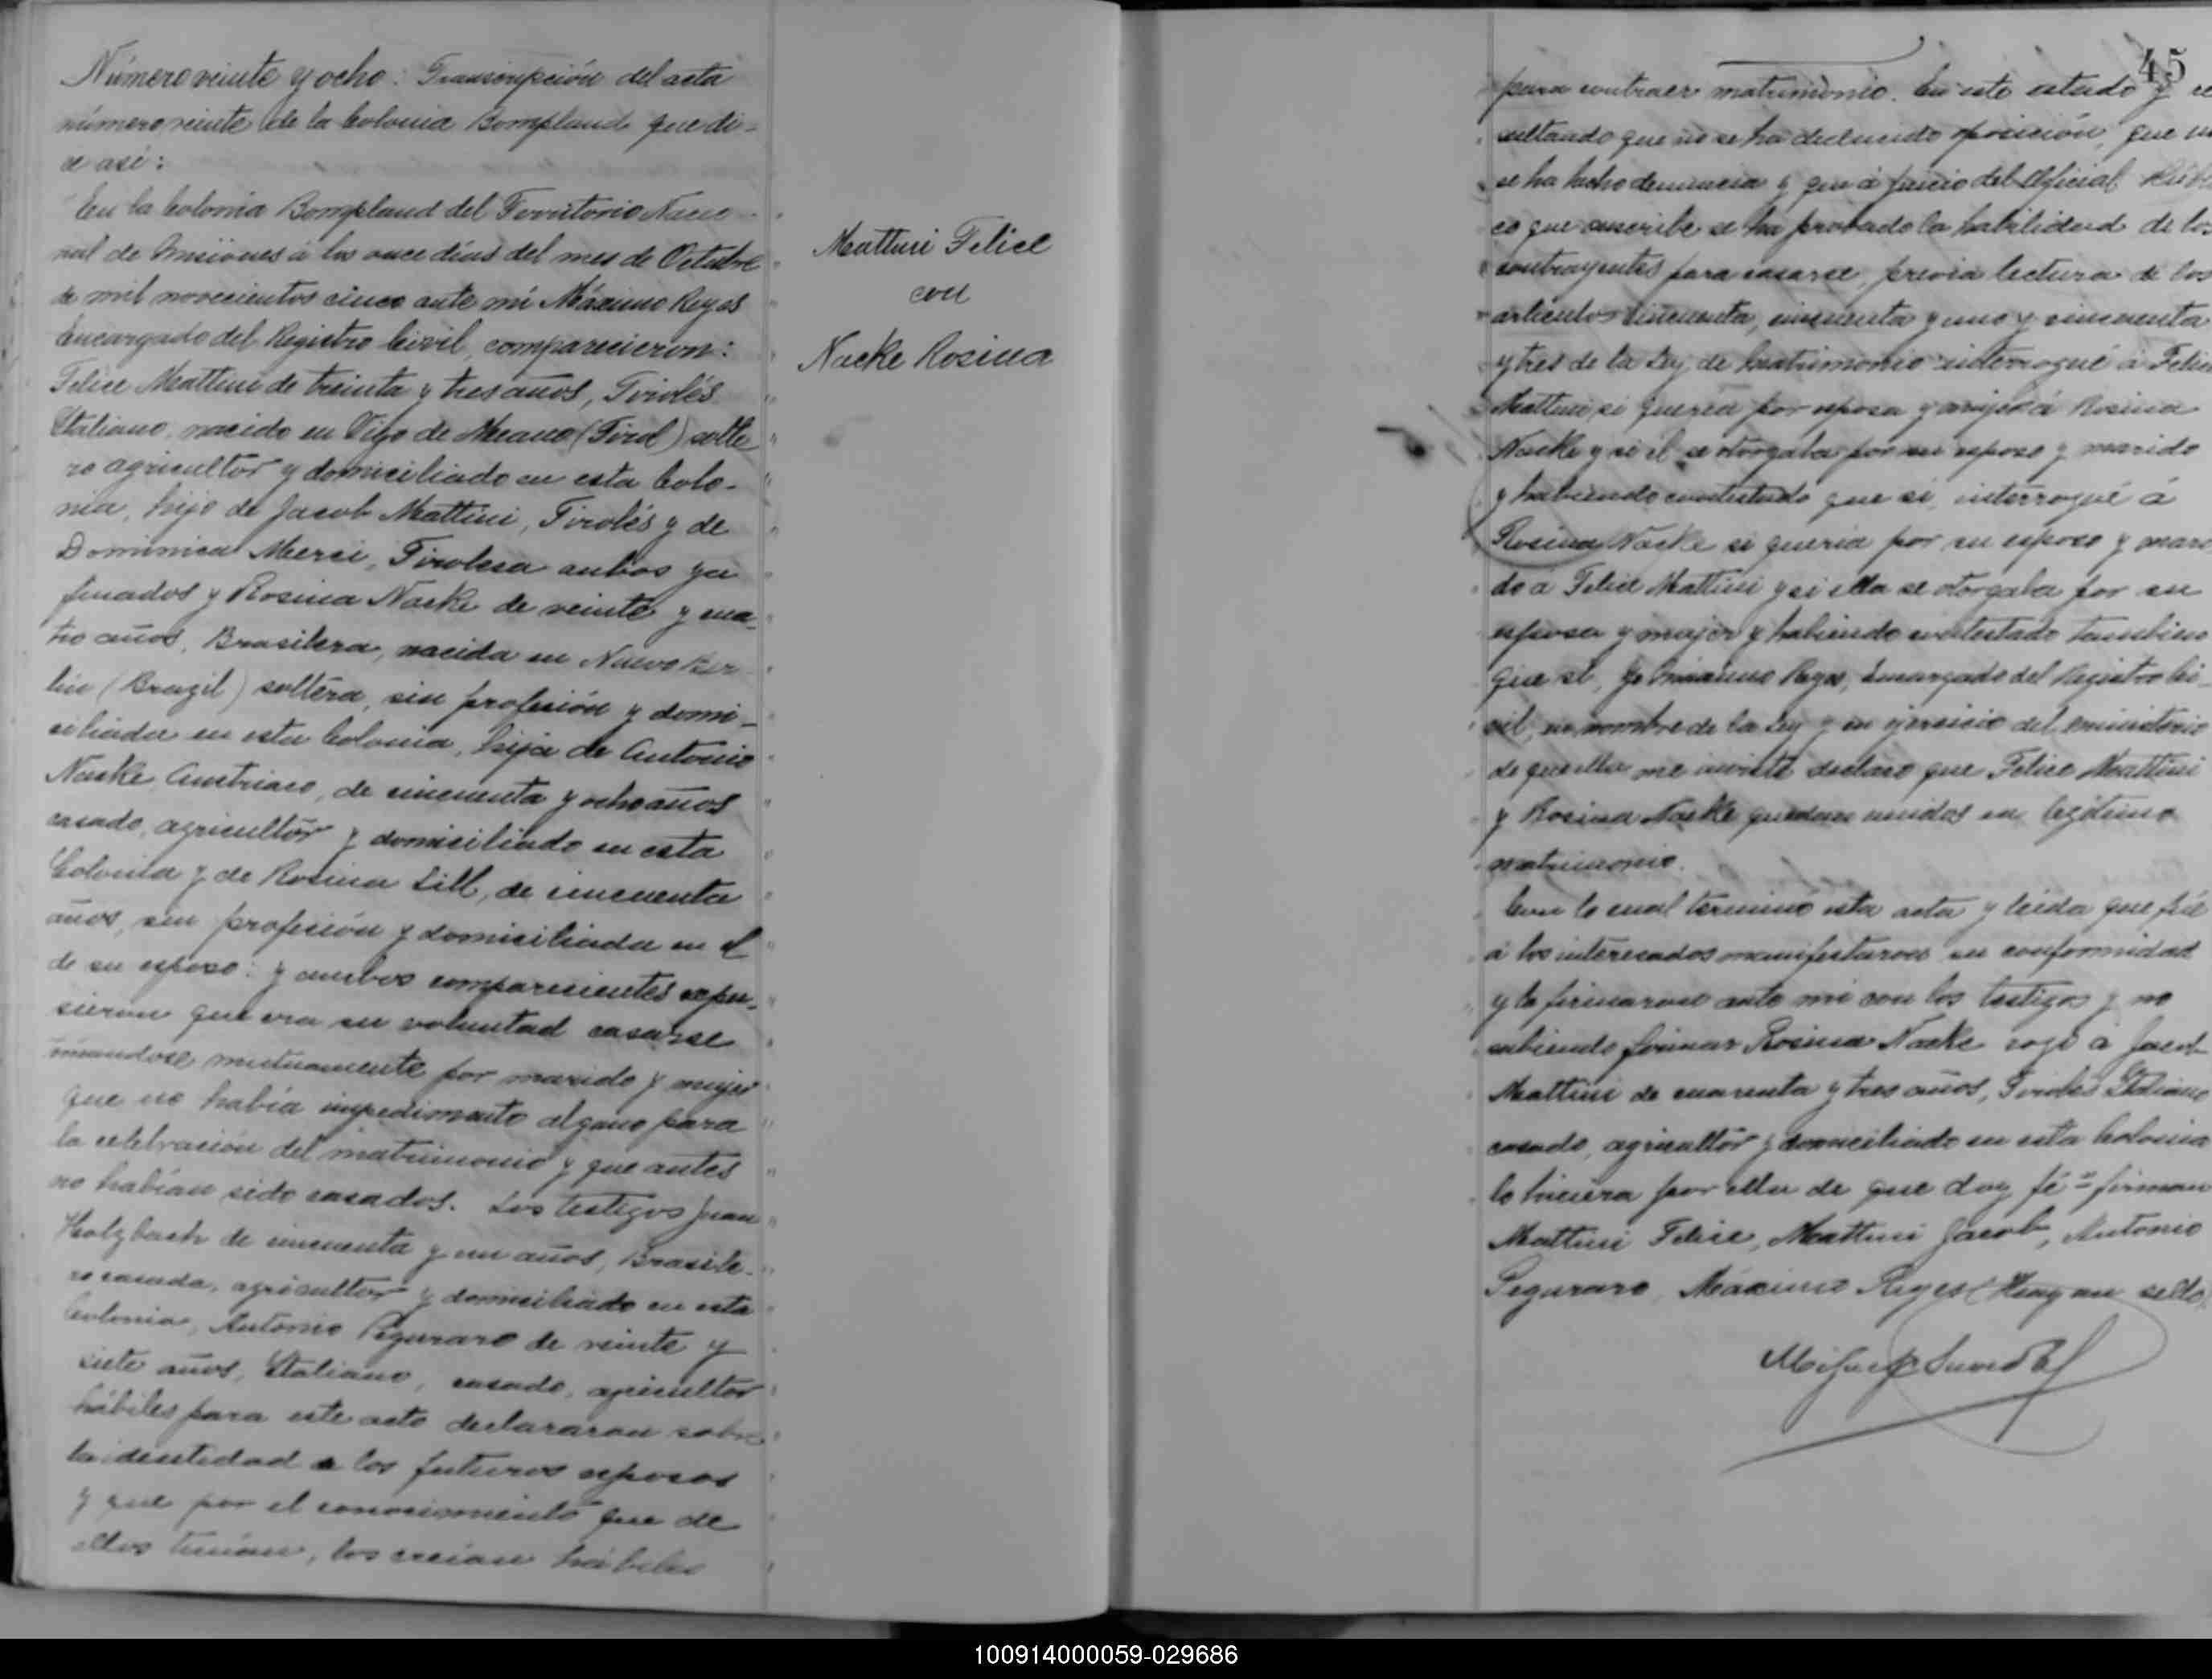 Número veinte y ocho: Transcripción del acta
número veinte de la Colonia Bompland que di-
ce asi:
En la Colonia Bompland del Territorio Nacio-
nal de Misiones á los once días del mes de Octubre
de mil novecientos cinco ante mi Máximo Reyes
Encargado del Registro Civil, comparecieron:
Felice Mattini de treinta y tres años, Tirolés
Italiano, nacido en Vigo de Meano (Tirol) solte
ro agricultor y domiciliado en esta Colo-
nia, hijo de Jacob Mattini, Tirolés y de
Dominica Merci, Tirolesa anbos ya
finados y Rosina Nacke de veinte y cua-
tro años, Brasilera, nacida en Nuevo Ber
lin (Brazil) soltera, sin profesión y domi-
ciliada en esta Colonia, hija de Antonio
Nacke Austriaco, de cincuenta y ocho años
casado, agricultor y domiciliado en esta
Colonia y de Rosina Lill, de cincuenta
años, sin profesión y domiciliada en el
de su esposo: y ambos comparecientes expu-
sieron que era su voluntad casarse
mutuamente por marido y mujer
que no había impedimento alguno para
la celebración del matrimonio y que antes
no habían sido casados. Los testigos Juan
Holzbach de cincuenta y un años, Brasile-
ro casado, agricultor y domiciliado en esta
Colonia, Antonio Peguraro de veinte y
siete años, Italiano, casado, agricultor
hábiles para este acto declararon sobre
la identidad de los futuros esposos
y que por el conocimiento que de
ellos tenían, los creían hábiles
Mattini Felice
con
Nacke Rosina
45
para contraer matrimonio. En este estado y re
sultando que no se ha deducido oposición, que no
se ha hecho denuncia y que á juicio del Oficial Públi
co que suscribe se ha probado la habilidad de los
contrayentes para casarse, previa lectura de los
artículos cincuenta, cincuenta y uno y cincuenta
y tres de la Ley de Matrimonio interrogué á Felice
Mattini si quería por esposa y mujer á Rosina
Nacke y si él se otorgaba por su esposo y marido
y habiendo contestado que si, interrogué á
Rosina Nacke si quería por su esposo y mari
do á Felice Mattini y si ella se otorgaba por su
esposa y mujer y habiendo contestado tambien
que si, Yo Máximo Reyes, Encargado del Registro Ci-
vil, en nombre de la Ley y en ejercicio del ministerio
de que ella me inviste declaro que Felice Mattini
y Rosina Nacke quedan unidos en legitimo
matrimonio.
Con lo cual terminó esta acta y leida que fué
á los interesados manifestaron su conformidad
y la firmaron ante mi con los testigos y no
sabiendo firmar Rosina Nacke rogó á Jacob
Mattini de cuarenta y tres años, Tirolés Italiano
casado, agricultor y domiciliado en esta Colonia
lo hiciera por ella de que doy fé = firman
Mattini Felice, Mattini Jacob, Antonio
Peguraro, Máximo Reyes (Hay un sello)
100914000059-029686